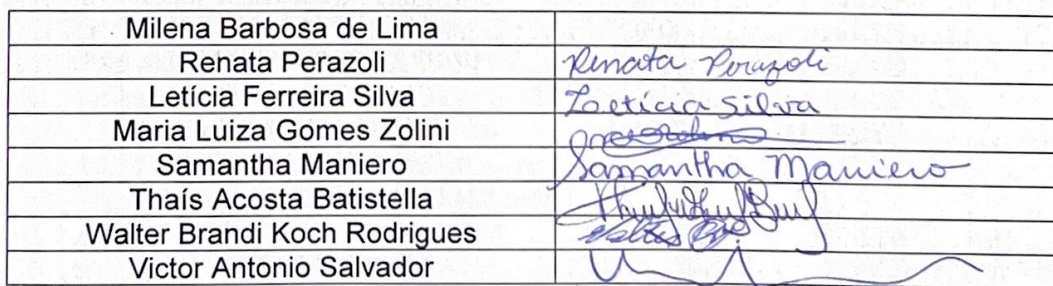 Milena Barbosa de Lima
Renata Perazoli Renata Perazoli
Letícia Ferreira Silva Letícia Silva
Maria Luiza Gomes Zolini
Samantha Maniero Samantha Maniero
Thaís Acosta Batistella
Walter Brandi Koch Rodrigues Walter
Victor Antonio Salvador